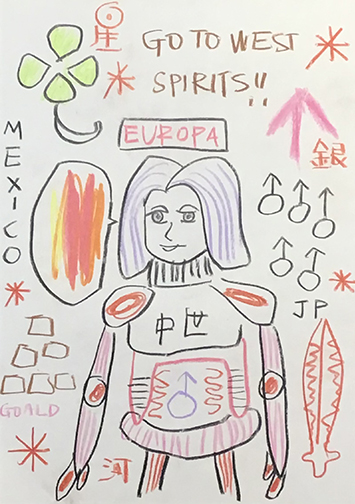 星
GO TO WEST
SPIRITS!!
EUROPA
銀
MEXICO
JP
中世
GOALD
河